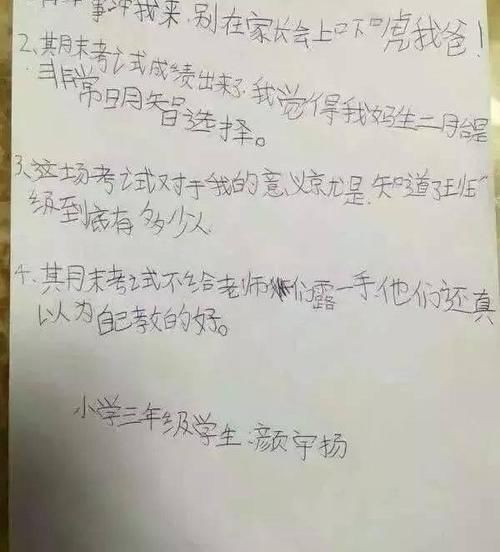 事冲我来,别在家长会上吓唬我爸!
2、期末考试成绩出来了,我觉得我妈生二胎是
非常明智选择。
3、这场考试对于我的意义就是,知道了班
级到底有多少人.
4、期末考试不给老师们露一手,他们还真
以为自己教的好。
小学三年级学生:颜宇扬